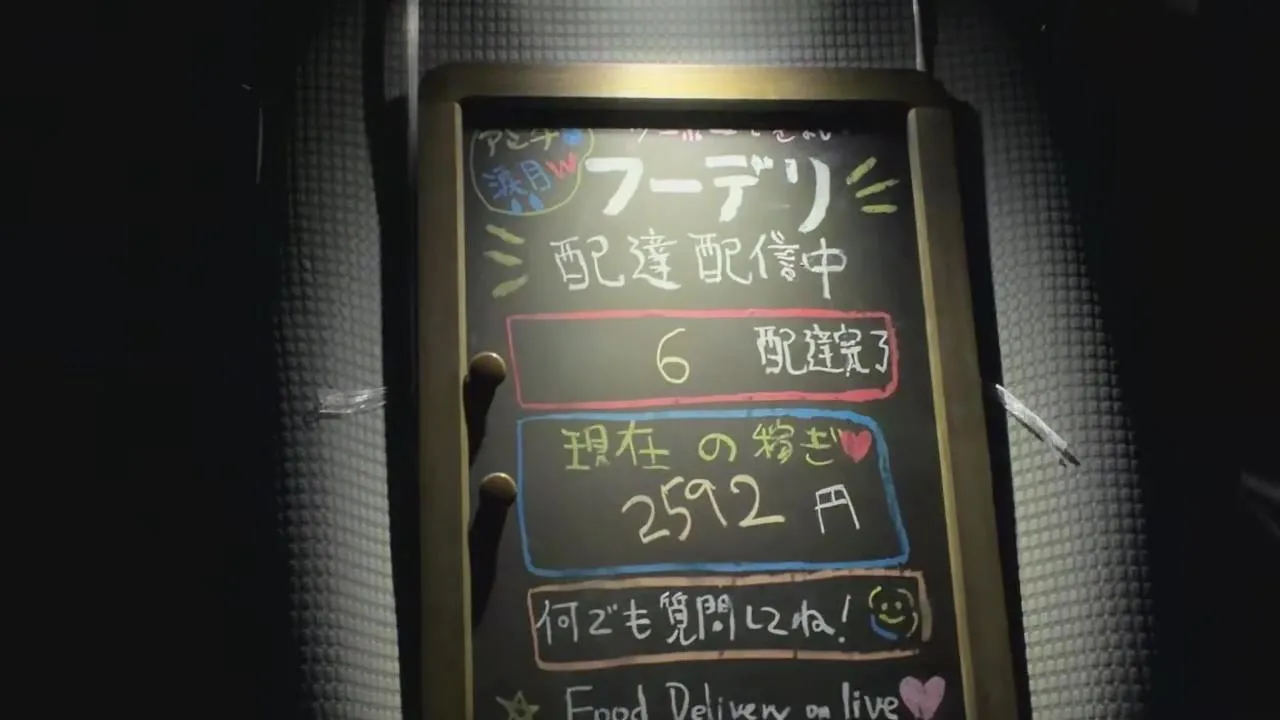 アンチ
涙月W
フーデリ
配達配信中
6 配達完了
現在の稼ぎ
2592円
何でも質問してね!
Food Delivery on live